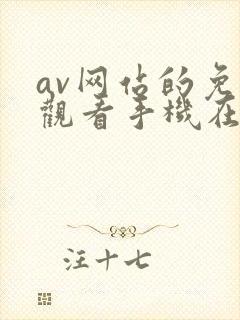 av网佔的免
觀看手機在
注十七